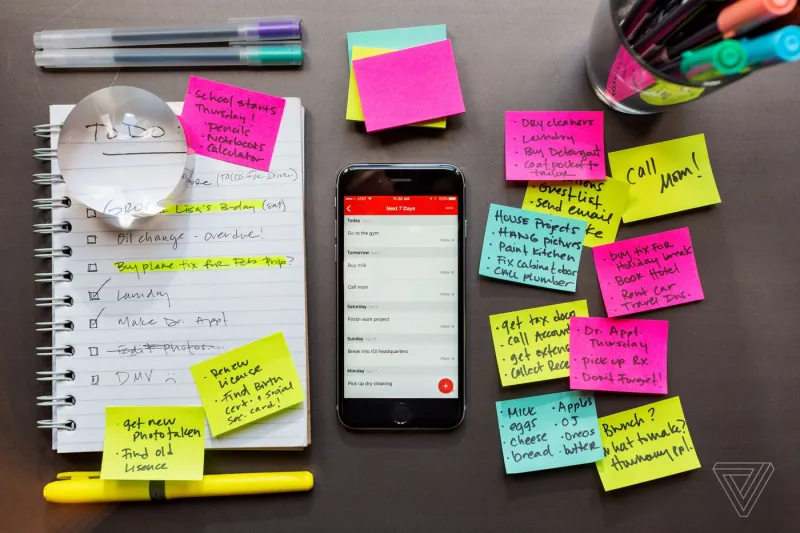 To Do
GROC
(TACOS FOR DINNER)
Lisa's B-day (sat)
Oil change - overdue!
Buy plane tix for Feb trip?
Laundry
Make Dr. Appt
Edit photos
DMV
• School starts
Thursday!
• Pencils
• Notebooks
• Calculator
• Renew
License
• Find Birth
cert. + social
sec. card!
• get new
Photo taken
• Find old
Lisence
AT&T
11:39 AM
Next 7 Days
Today
Go to the gym
Tomorrow
Buy milk
Inbox
Call mom
Inbox
Saturday
Finish work project
Inbox
Sunday
Break into IOI headquarters
Inbox
Monday
Pick up dry cleaning
• Dry cleaners
• Laundry
• Buy Detergent
• Coat pocket to
tailor
Guest List
send email
Call
Mom!
House Projects
• HANG pictures
• Paint kitchen
• Fix Cabinet door
• CALL plumber
• Buy tix FOR
Holiday break
• Book Hotel
• Rent Car
• Travel Ins.
• get tax docs
• call Account
• get extens
• Collect Rece
• Dr. Appt
Thursday
• pick up Rx
• Don't Forget!
• Milk
• eggs
• cheese
• bread
• Apples
• OJ
• Oreos
• butter
Brunch?
What to make?